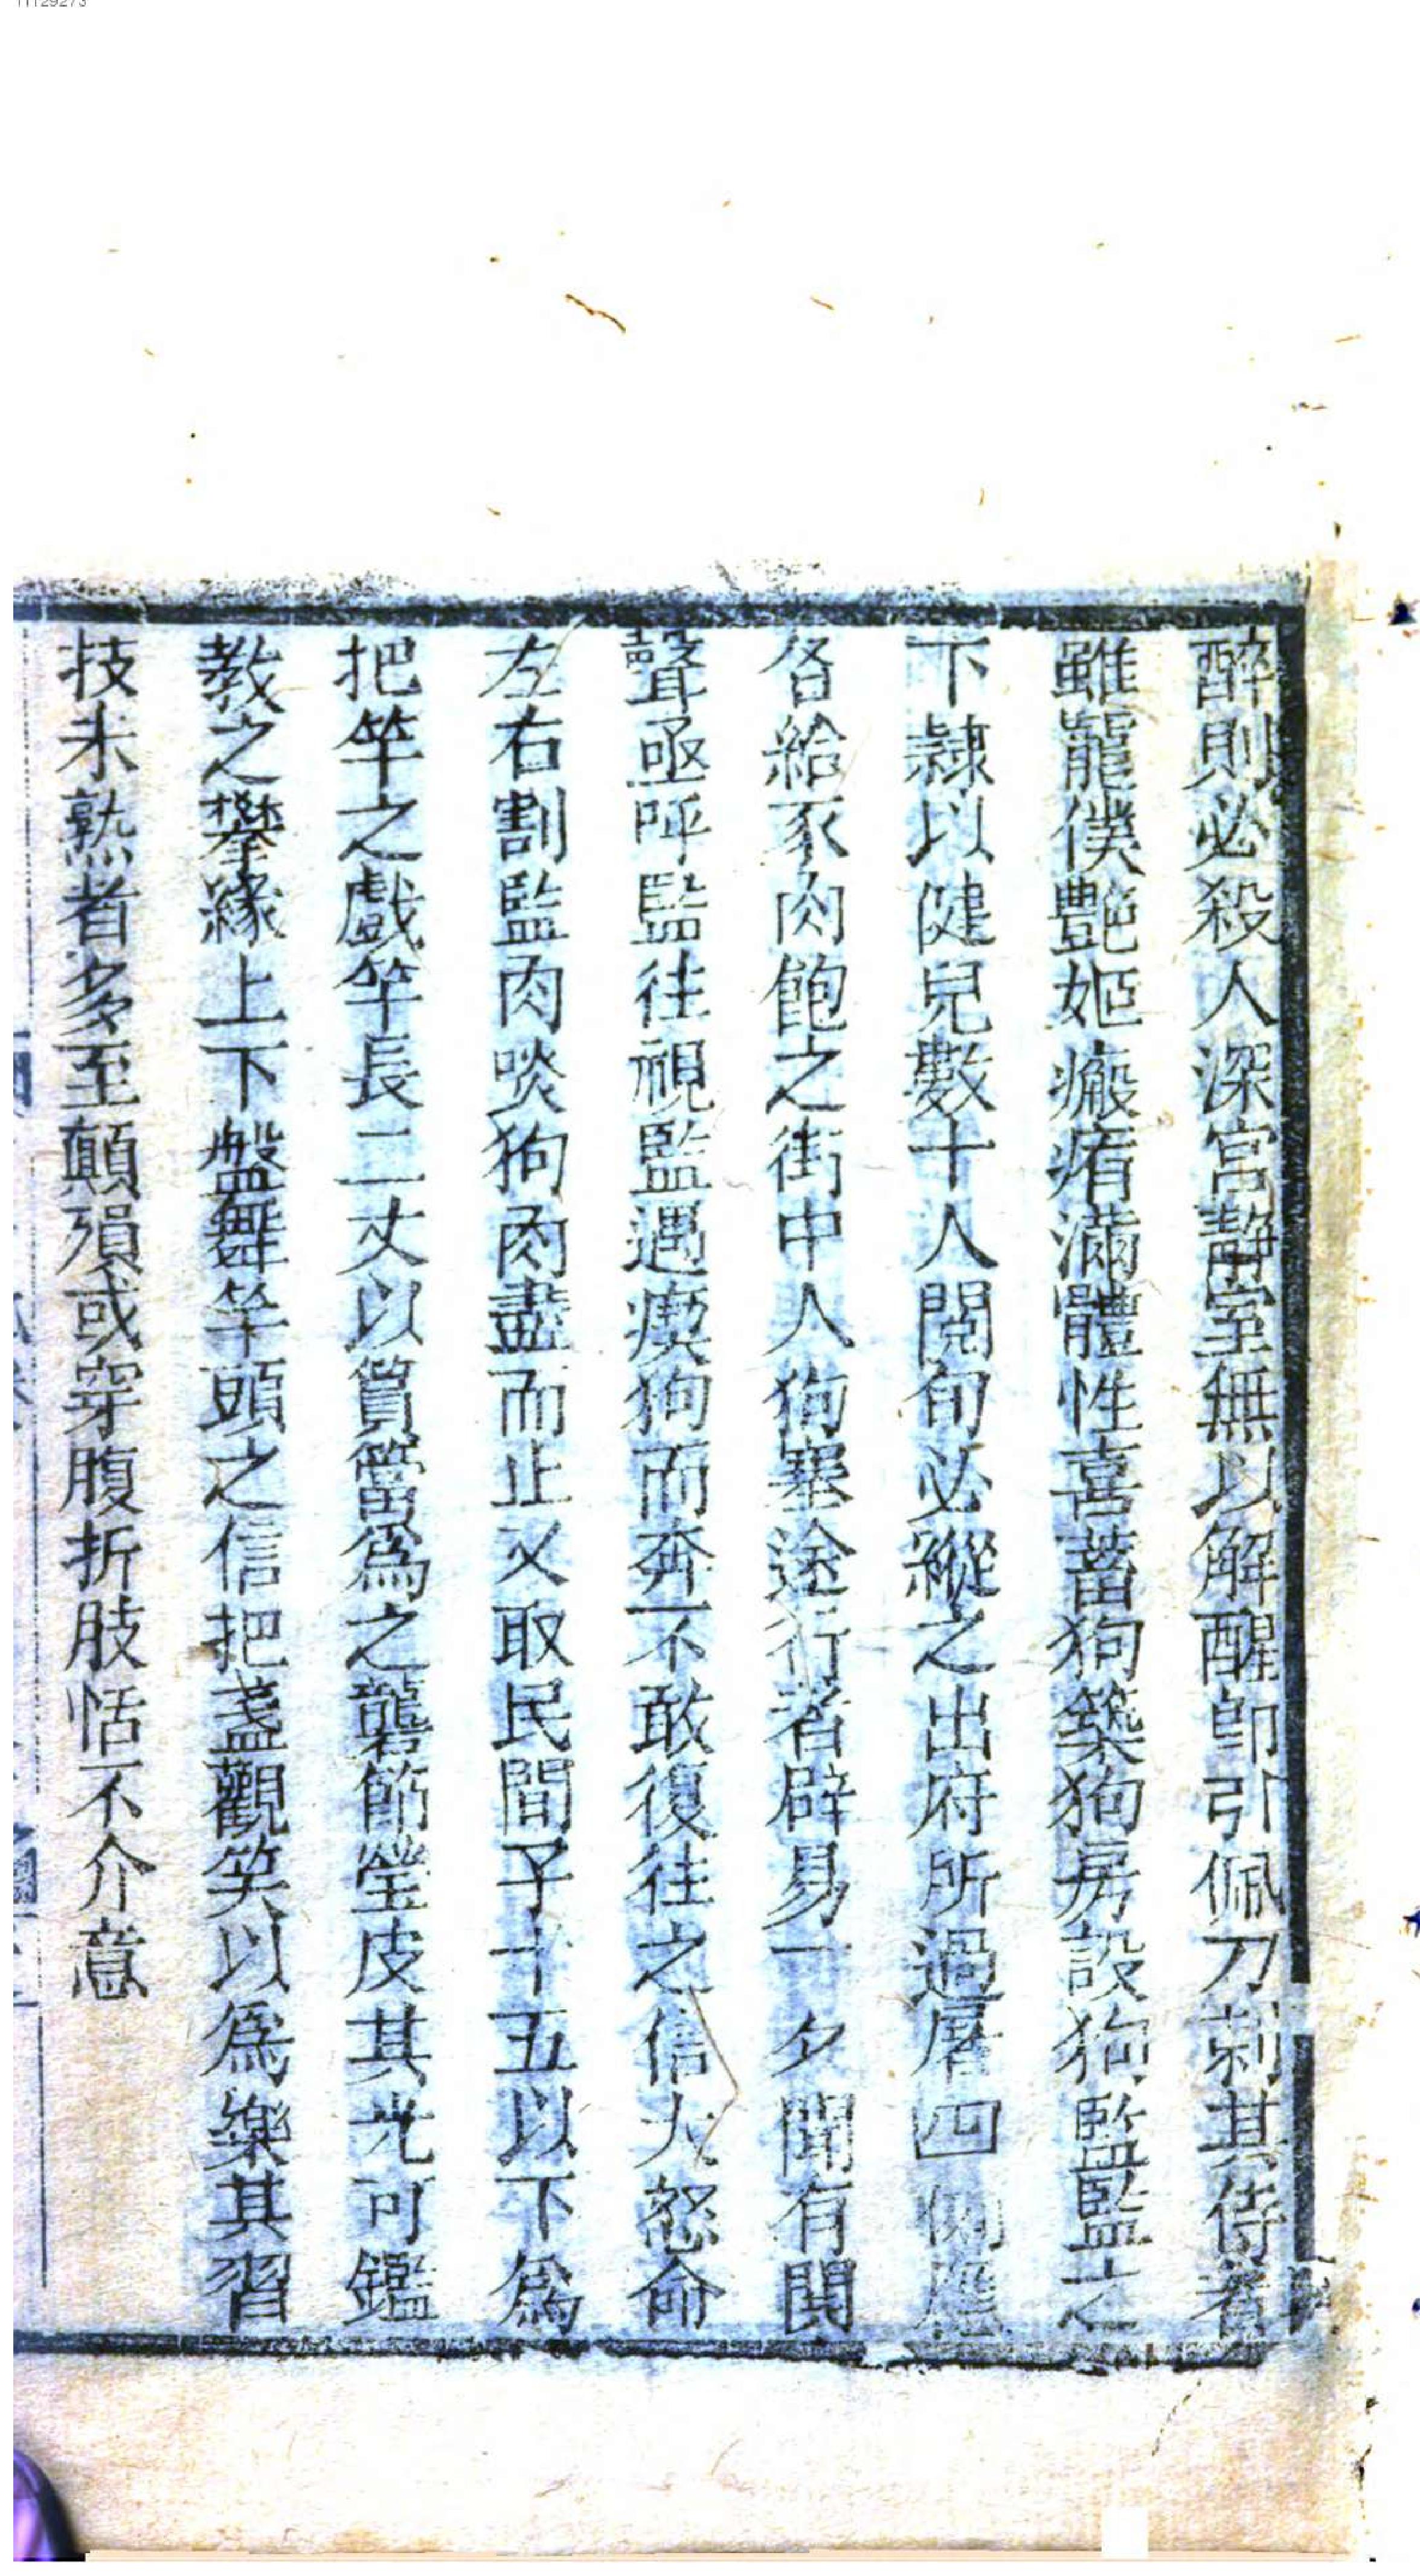 醉則必殺人深宮静室無以解酲卽引佩刀刺其侍者
雖寵僕艷姬瘢痏滿體性喜蓄狗築狗房設狗監監之
下隷以健兒數十人閱旬必縱之出府所過屠四側應
各給豕肉飽之街中人狗塞途行者辟易一夕聞有鬨
聲亟呼監往視監遇瘈狗而奔不敢復往之信大怒命
左右割監肉啖狗肉盡而止又取民間子十五以下爲
把竿之戲竿長二丈以篔簹爲之礱節瑩皮其光可鑑
教之攀緣上下盤舞竿頭之信把盞觀笑以爲樂其習
技未熟者多至顚殞或穿腹折肢恬不介意